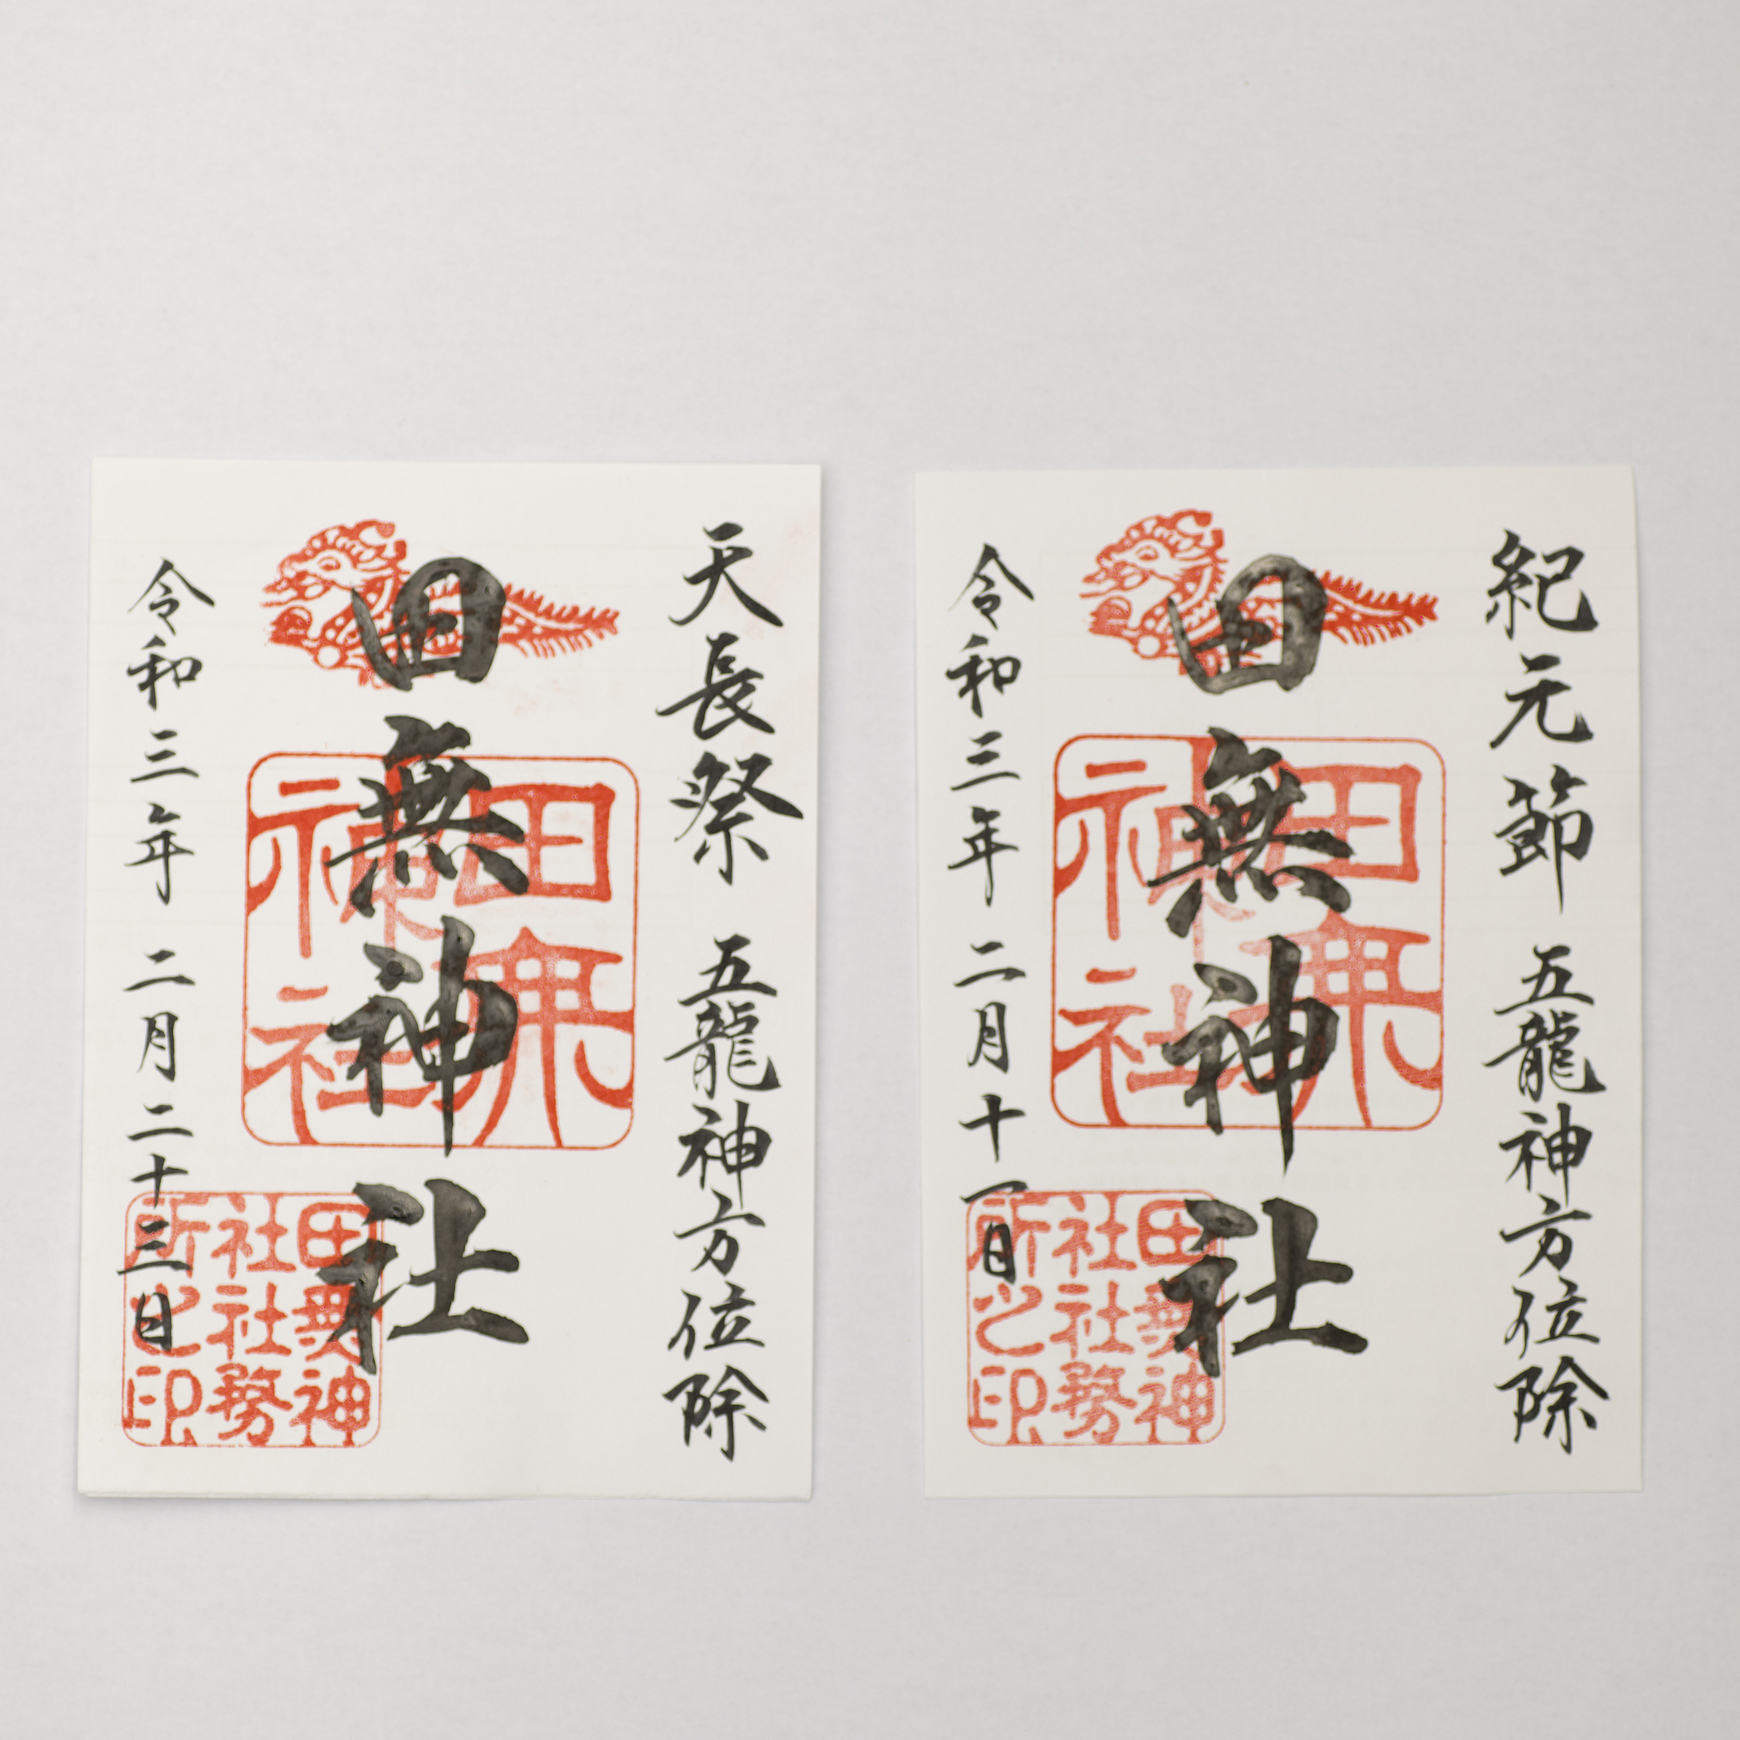 天長祭 五龍神方位除
田無神社
令和三年 二月二十三日
田無神社
田無神社社務所之印
紀元節 五龍神方位除
田無神社
令和三年 二月十一日
田無神社
田無神社社務所之印